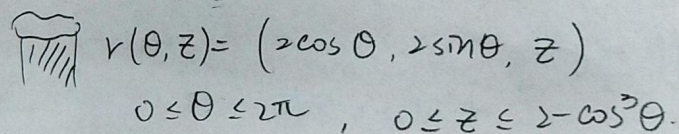 r(θ, z) = (2cos θ, 2sinθ, z)
0 ≤ θ ≤ 2π , 0 ≤ z ≤ 2 - cos³θ.